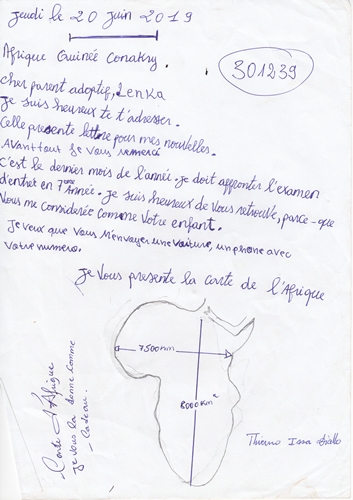 Jeudi le 20 juin 2019
Afrique Guinée Conakry.
301239
cher parent adoptif, Lenka
Je suis heureux te t'adresser.
Celle presente lettre pour mes nouvelles.
Avant tout Je Vous remerci
C'est le dernier mois de l'année. Je doit affronter l'examen
d'entré en 7ème Année. Je suis heureux de Vous retrouvé, parce-que
Vous me considerée comme Votre enfant.
Je veux que vous M'envoyer une voiture, un phone avec
Votre numero.
Je Vous presente la carte de l'Afrique
7500km
8000Km²
Carte d'Afrique
Je vous la donne comme
Cadeau.
Thierno Issa Diallo